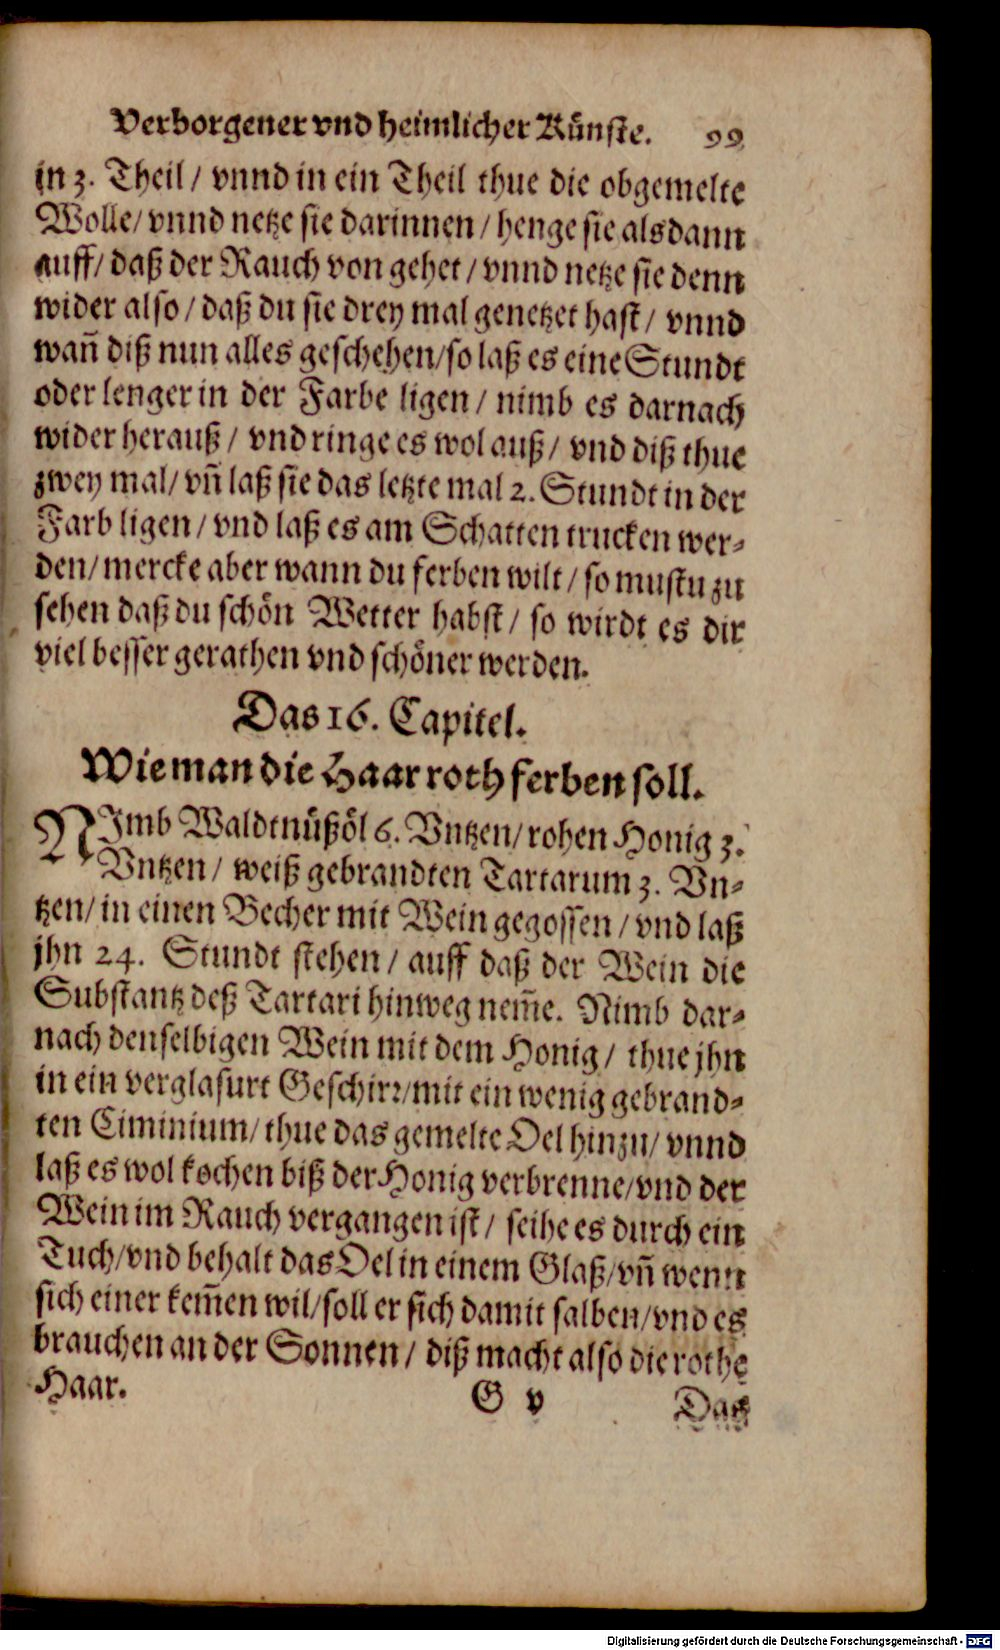 Verborgener vnd heimlicher Künste. 99
in 3. Theil / vnnd in ein Theil thue die obgemelte
Wolle / vnnd netze sie darinnen / henge sie alsdann
auff / daß der Rauch von gehet / vnnd netze sie denn
wider also / daß du sie drey mal genetzet hast / vnnd
wañ diß nun alles geschehen / so laß es eine Stundt
oder lenger in der Farbe ligen / nimb es darnach
wider herauß / vnd ringe es wol auß / vnd diß thue
zwey mal / vñ laß sie das letzte mal 2. Stundt in der
Farb ligen / vnd laß es am Schatten trucken wer-
den / mercke aber wann du ferben wilt / so mustu zu
sehen daß du schön Wetter habst / so wirdt es dir
viel besser gerathen vnd schöner werden.
Das 16. Capitel.
Wie man die Haar roth ferben soll.
NImb Waldtnüßöl 6. Vntzen / rohen Honig 3.
Vntzen / weiß gebrandten Tartarum 3. Vn-
tzen / in einen Becher mit Wein gegossen / vnd laß
jhn 24. Stundt stehen / auff daß der Wein die
Substantz deß Tartari hinweg nem̃e. Nimb dar-
nach denselbigen Wein mit dem Honig / thue jhn
in ein verglasurt Geschirr / mit ein wenig gebrand-
ten Ciminium / thue das gemelte Oel hinzu / vnnd
laß es wol kochen biß der Honig verbrenne / vnd der
Wein im Rauch vergangen ist / seihe es durch ein
Tuch / vnd behalt das Oel in einem Glaß / vñ wenn
sich einer kem̃en wil / soll er sich damit salben / vnd es
brauchen an der Sonnen / diß macht also die rothe
Haar.
G v Das
Digitalisierung gefördert durch die Deutsche Forschungsgemeinschaft - DFG